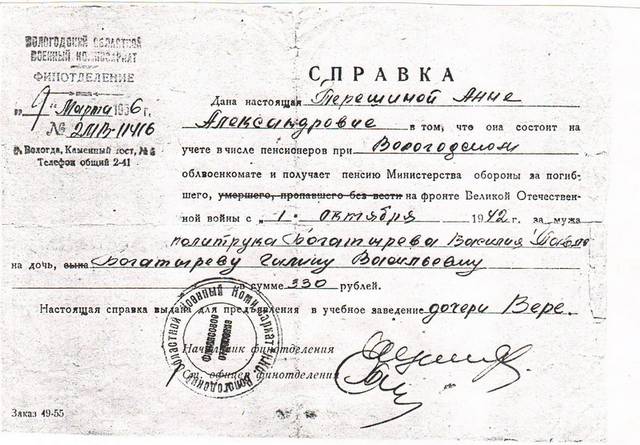 ВОЛОГОДСКИЙ ОБЛАСТНОЙ
ВОЕННЫЙ КОМИССАРИАТ
ФИНОТДЕЛЕНИЕ
„9" Марта 1956 г.
№ 2ПВ-11416
г. Вологда, Каменный мост, № 6
Телефон общий 2-41
СПРАВКА
Дана настоящая Терешиной Анне
Александровне в том, что она состоит на
учете в числе пенсионеров при Вологодском
облвоенкомате и получает пенсию Министерства обороны за погиб-
шего, умершего, пропавшего без вести на фронте Великой Отечествен-
ной войны с „1" октября 1942 г. за мужа
политрука Богатырева Василия
на дочь, сына Богатыреву Галину Васильевну
в сумме 330 рублей.
Настоящая справка выдана для предъявления в учебное заведение дочери Вере.
Начальник финотделения
Ст. офицер финотделения
Вологодский областной военный комиссариат
финансовое отделение
Заказ 49-55